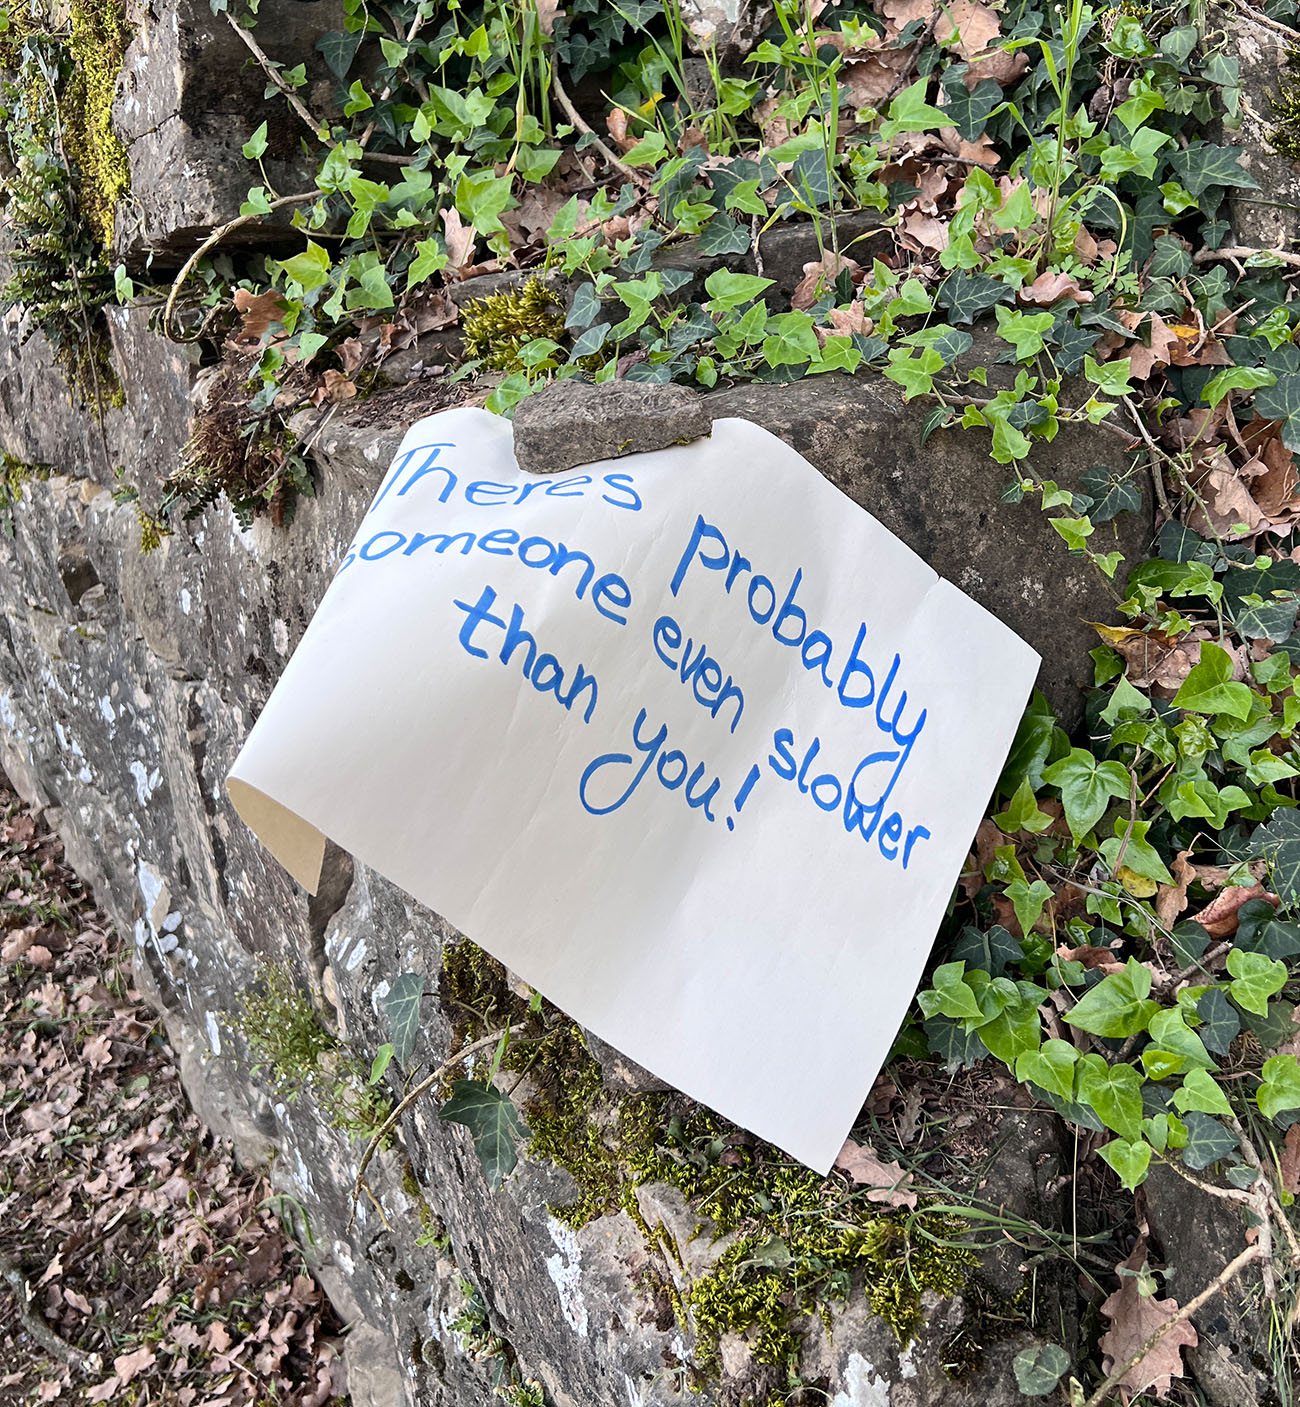 Theres probably
someone even slower
than you!